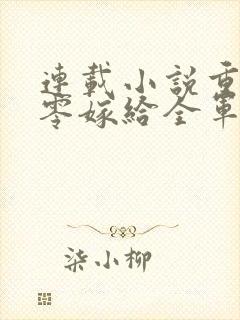 連載小說重
零嫁給全軍
柒小柳